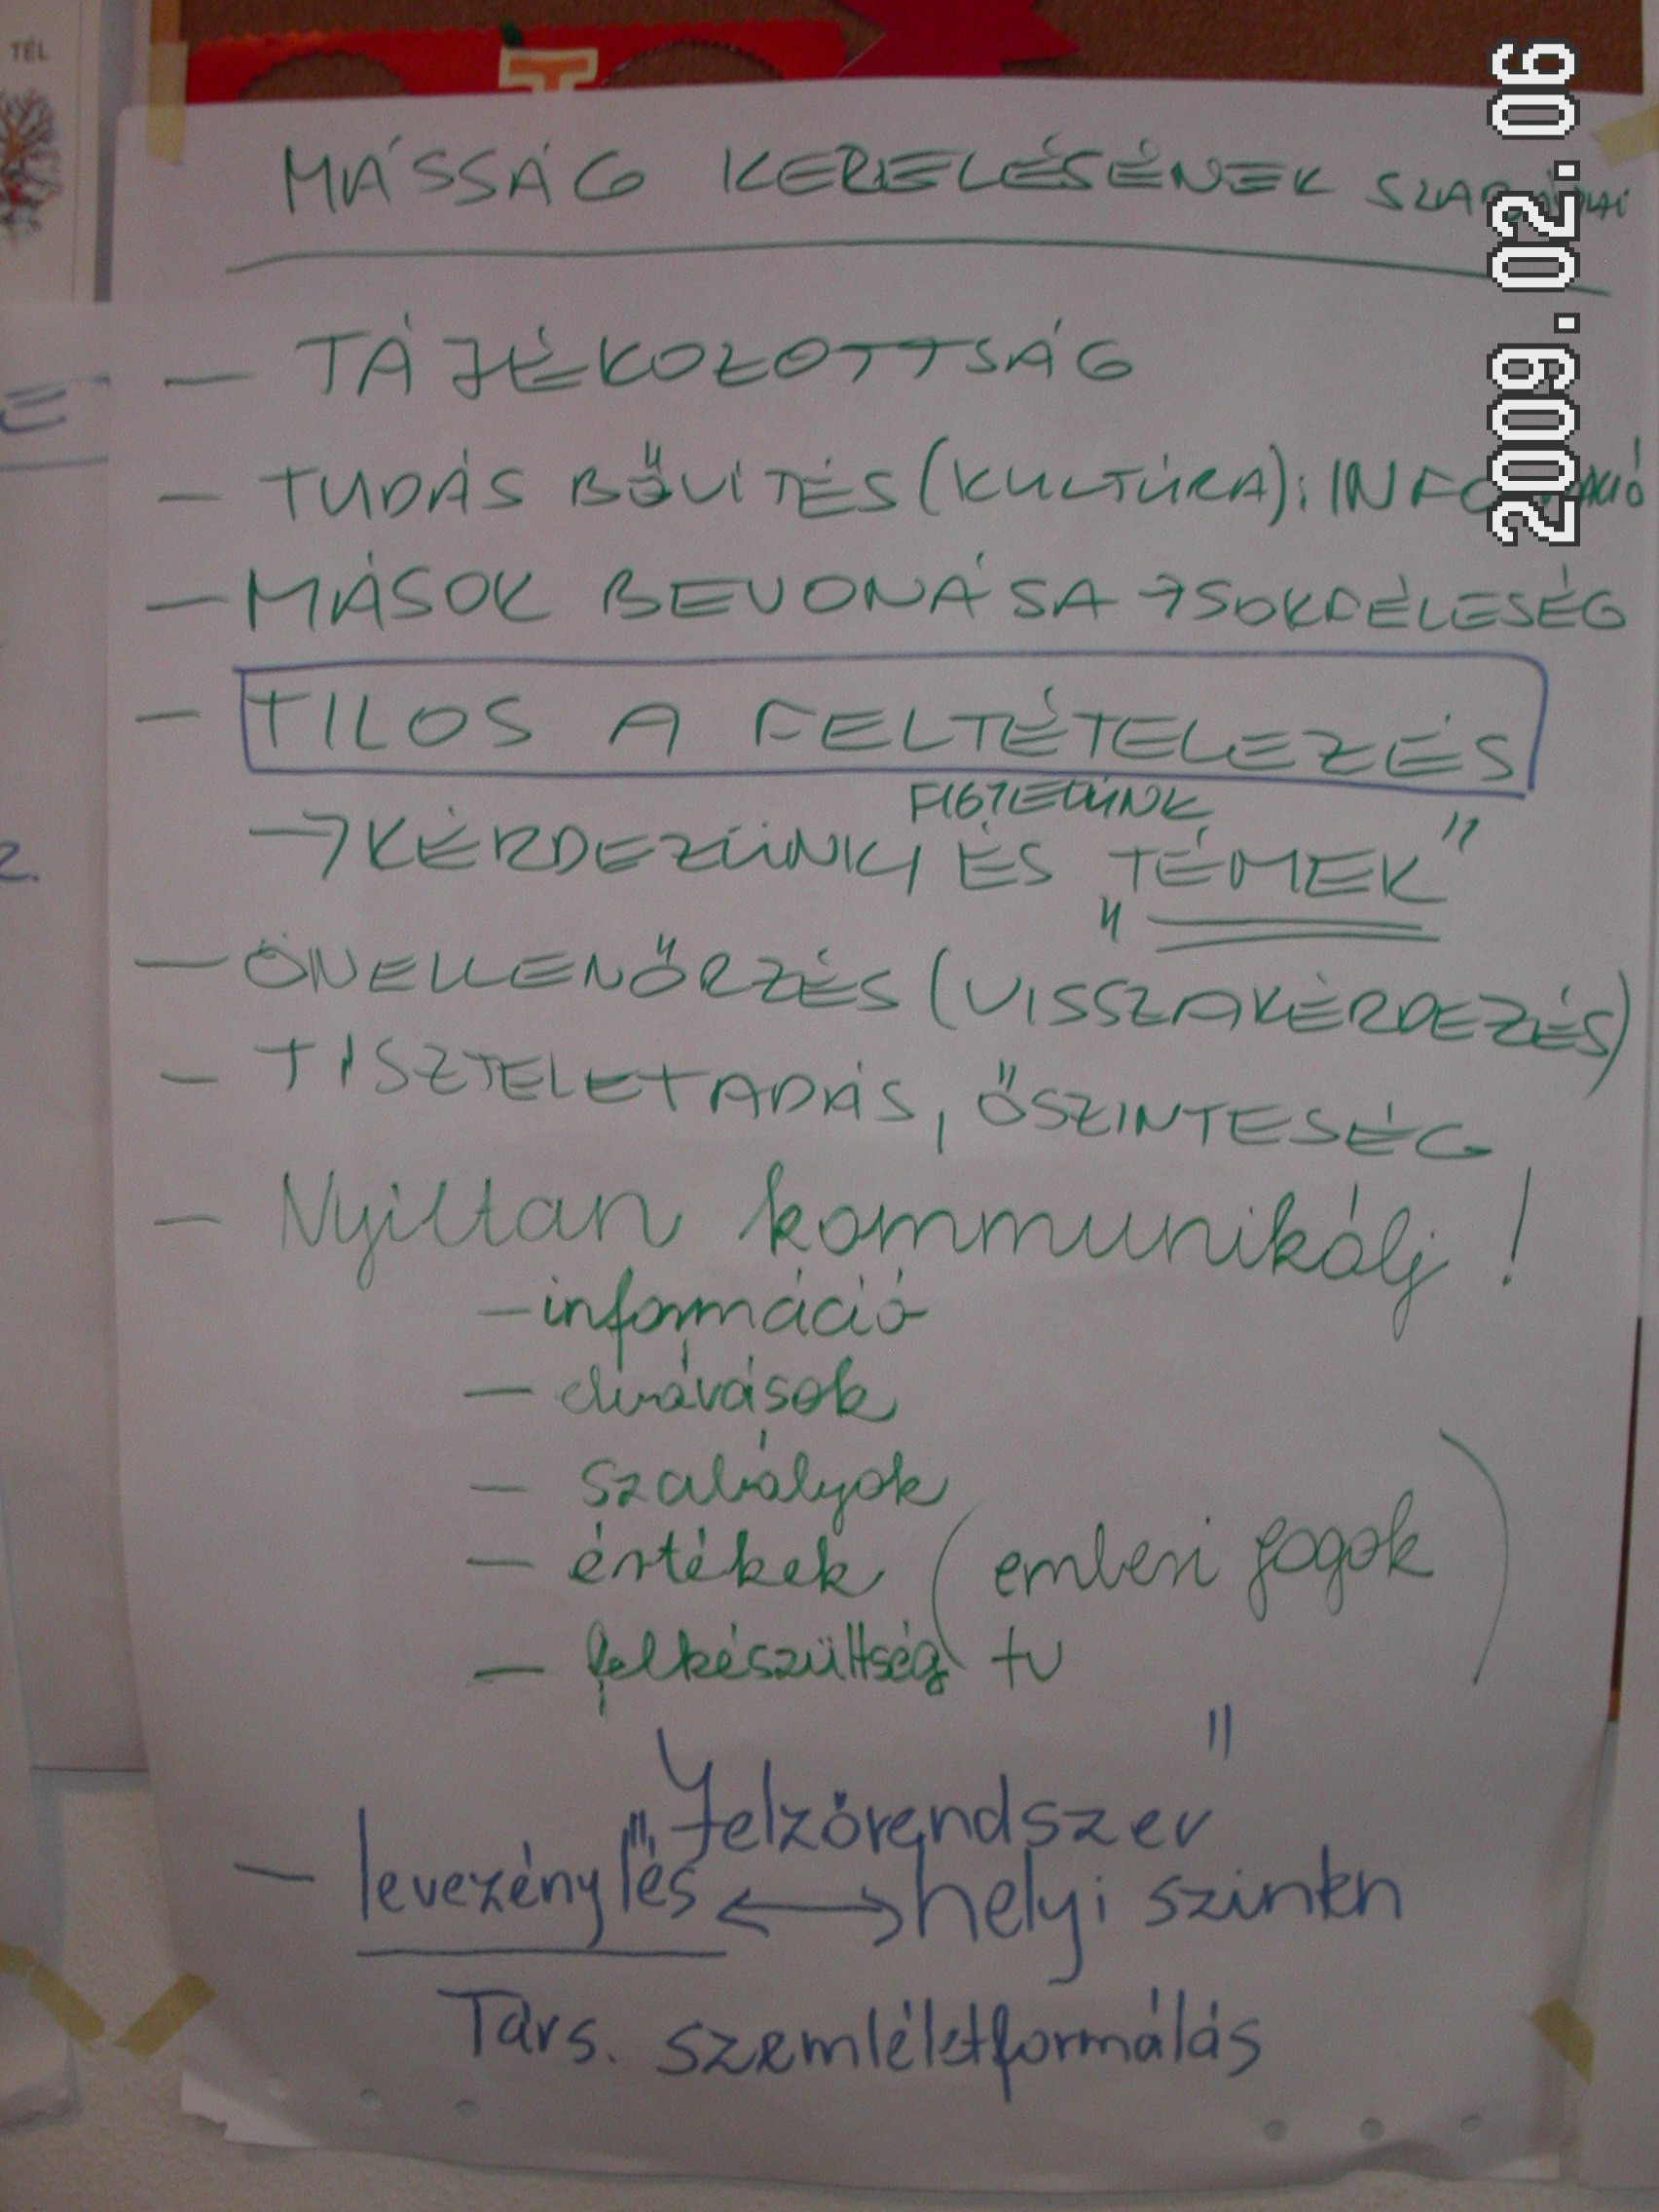 TÉL
T
2009.02.06
MÁSSÁG KERELÉSÉNEK
— TÁJÉKOZOTTSÁG
— TUDÁS BŐVÍTÉS (KULTÚRA); INFORMÁCIÓ
— MÁSOK BEVONÁSA → SOKDÉLESÉG
— TILOS A FELTÉTELEZÉS
FIGYELÜNK
→ KÉRDEZÜNK, ÉS „TÉMEK”
— ÖNELLENŐRZÉS (VISSZAKÉRDEZÉS)
— TISZTELETADÁS, ŐSZINTESÉG
— Nyiltan kommunikálj!
— információ
— elvárások
— szabályok
— értékek (emberi jogok
— felkészültség tv)
„Jelzőrendszer”
— levezénylés ↔ helyi szinten
Társ. szemléletformálás
E
2.